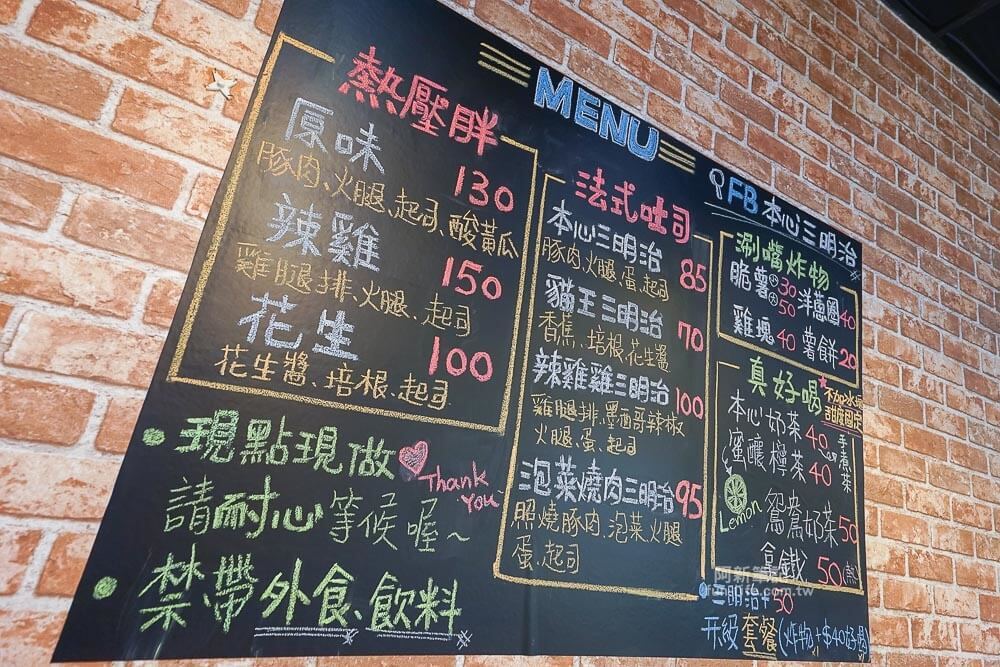 MENU
熱壓胖
原味 130
豚肉、火腿、起司、酸黃瓜
辣雞 150
雞腿排、火腿、起司
花生 100
花生醬、培根、起司
現點現做 Thank you
請耐心等候喔~
禁帶外食、飲料
法式吐司
本心三明治 85
豚肉、火腿、蛋、起司
貓王三明治 70
香蕉、培根、花生醬
辣雞雞三明治 100
雞腿排、墨西哥辣椒
火腿、蛋、起司
泡菜燒肉三明治 95
照燒豚肉、泡菜、火腿
蛋、起司
FB 本心三明治
涮嘴炸物
脆薯 小30 大50 洋蔥圈 40
雞塊 40 薯餅 20
真好喝
甜度固定
本心奶茶 40
手煮茶
蜜釀檸茶 40
Lemon
鴛鴦奶茶 50
拿鐵 50(熱)
三明治+50
升級套餐(炸物+$40好喝)
阿新筆記